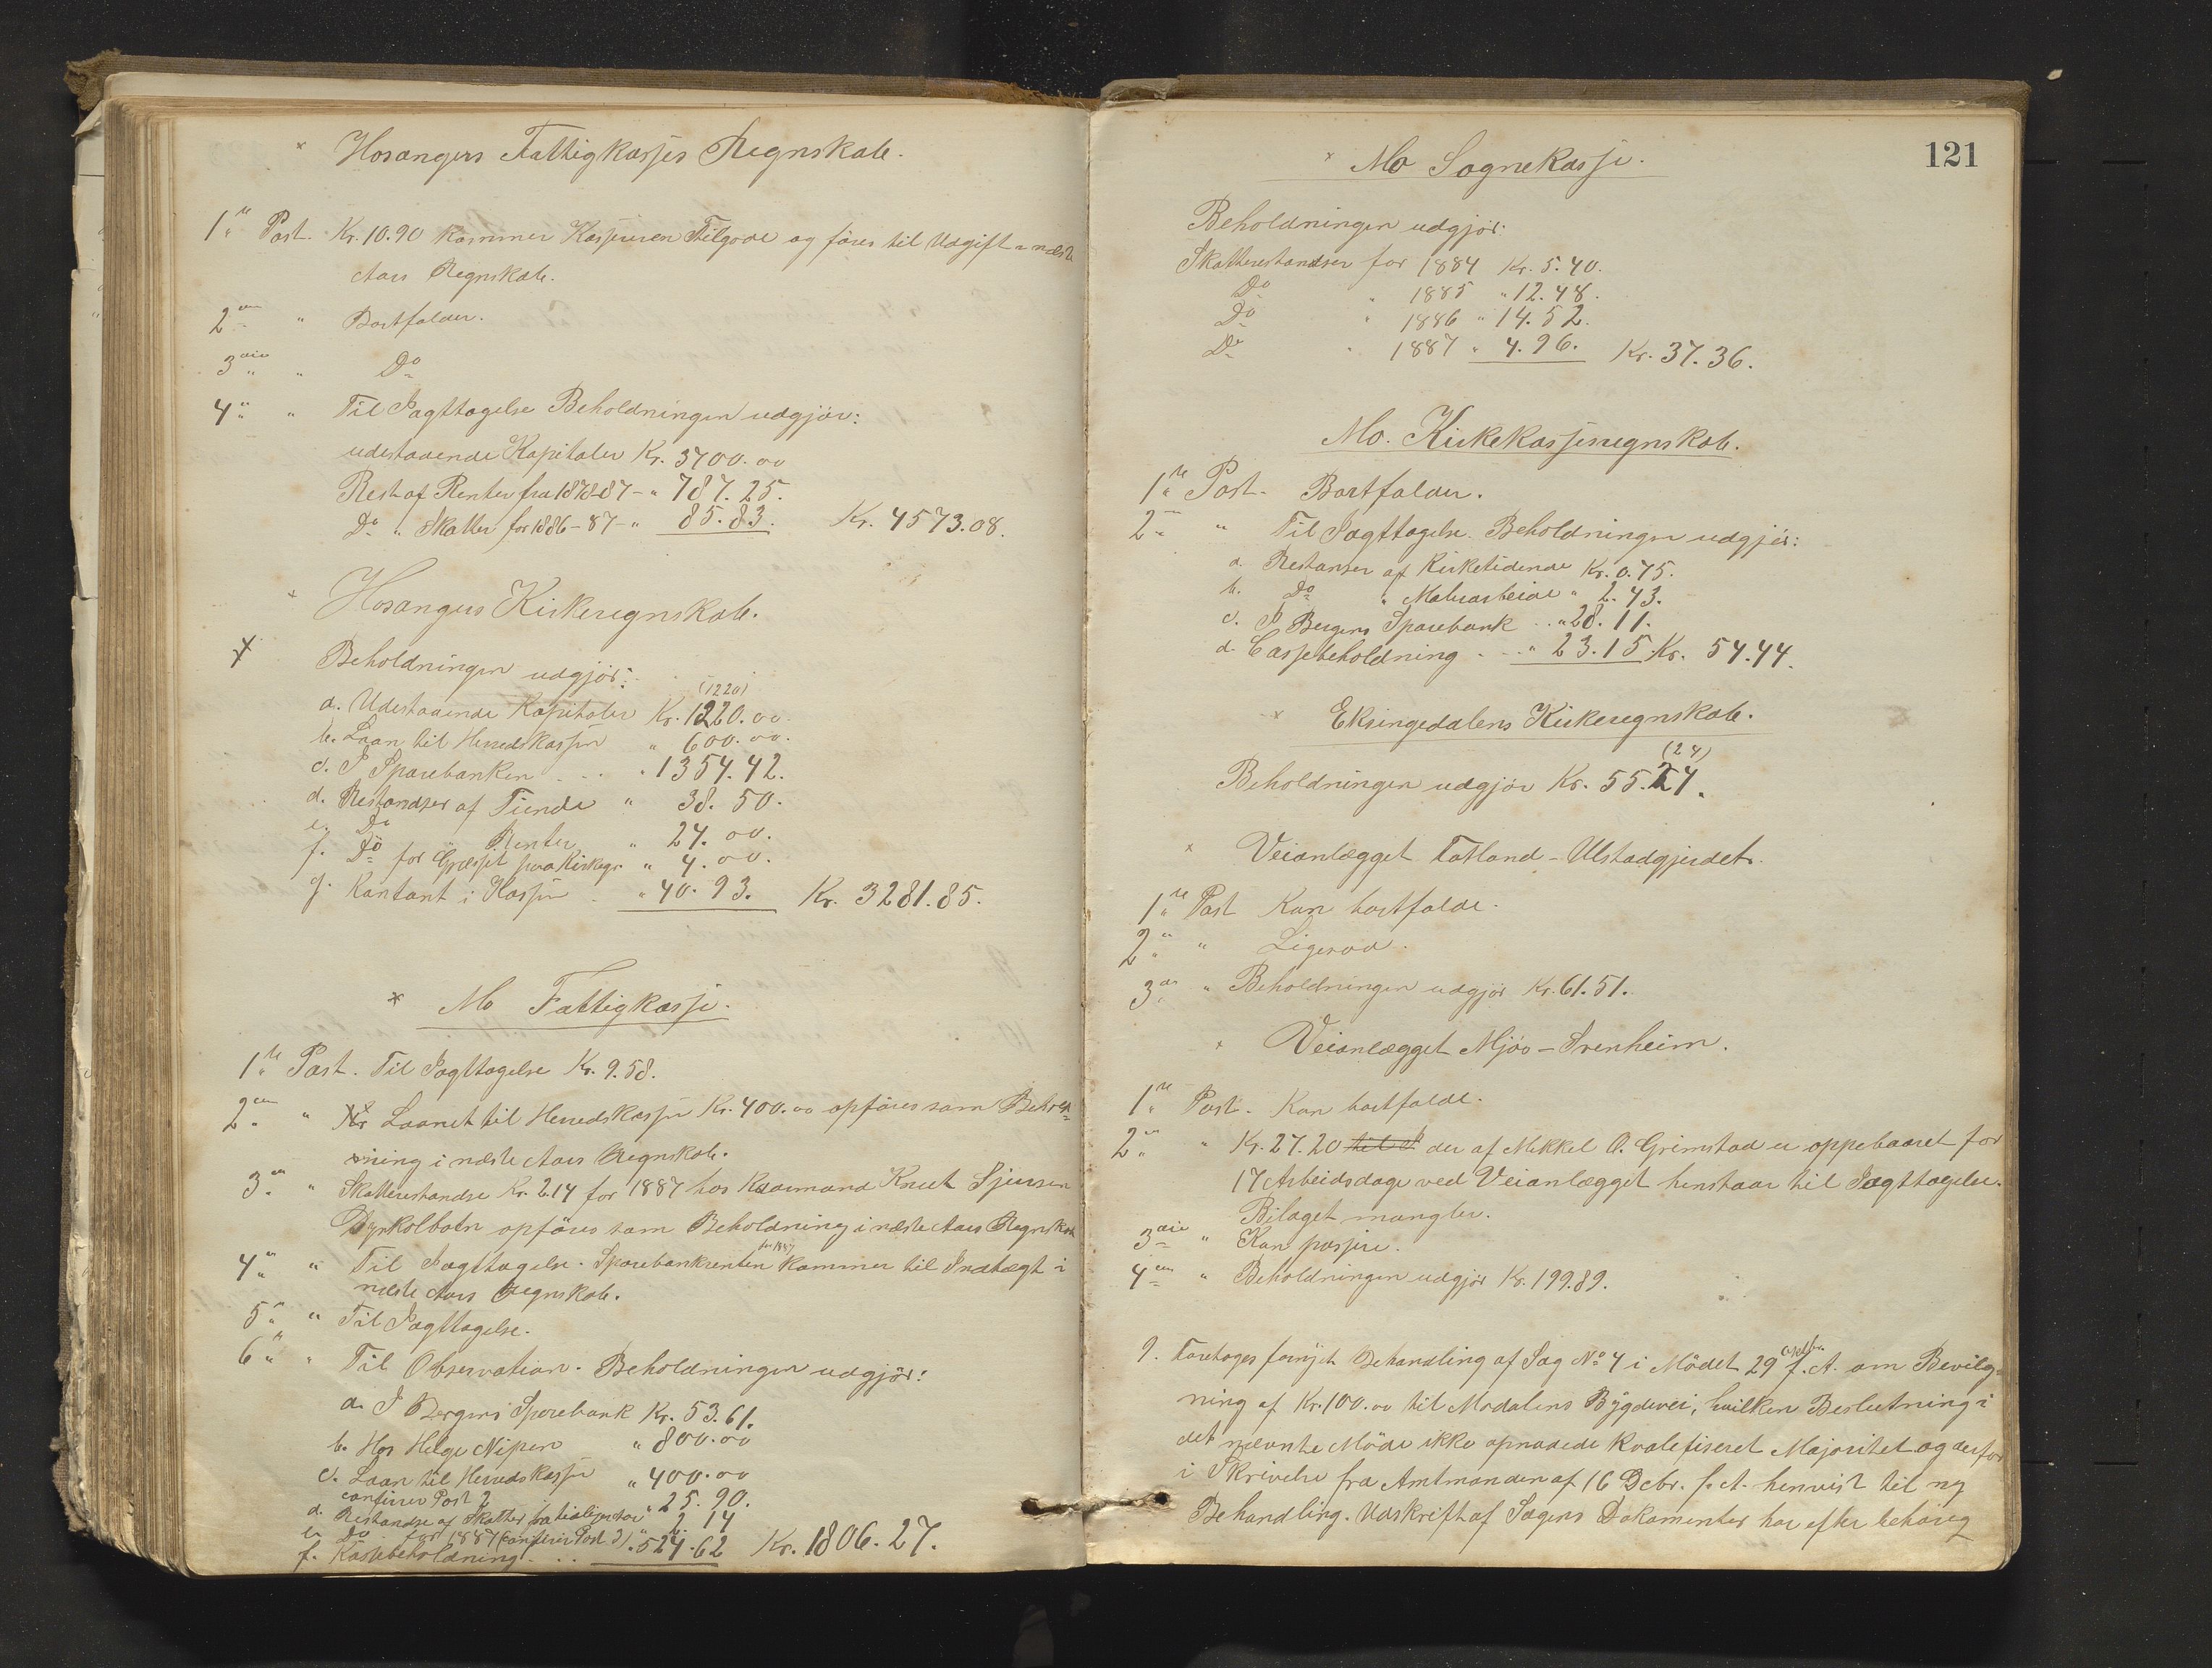 Hosangers Fattigkasses Regnskab.
1ste Post. Kr. 10.90 kommer Kassereren Tilgode og føres til Udgift i næste
Aars Regnskab.
2den " Bortfalder.
3die " Do
4de " Til Iagttagelse Beholdningen udgjør:
udestaaende Kapitaler Kr. 3700.00
Rest af Renter fra 1878-87 - " 787.25.
Do " Skatter for 1886-87 - " 85.83. Kr. 4573.08.
Hosangers Kirkeregnskab.
Beholdningen udgjør:
(1220)
a. Udestaaende Kapitaler Kr. 1220.00.
b. Laan til Herredskassen " 600.00.
c. I Sparebanken " 1354.42.
d. Restandser af Tiende " 38.50.
e. Do " Renter " 24.00.
f. Do for Græsset paa Kirkegr. " 4.00.
g. Kontant i Kassen " 40.93. Kr. 3281.85.
Mo Fattigkasse.
1ste Post. Til Iagttagelse Kr. 9.58.
2den " Laanet til Herredskassen Kr. 400.00 opføres som Behold-
ning i næste Aars Regnskab.
3die " Skatterestandse Kr. 2.14 for 1887 hos Kaarmand Knut Sjursen
Dyrkolbotn opføres som Beholdning i næste Aars Regnskab
4de " Til Iagttagelse. Sparebankrenten for 1887 kommer til Indtægt i
næste Aars Regnskab.
5te " Til Iagttagelse.
6te " Til Observation. Beholdningen udgjør:
a. I Bergens Sparebank Kr. 53.61.
b. Hos Helge Nipen " 800.00
c. Laan til Herredskassen " 400.00
confirer Post 2
d. Restandse af Skatter fra tidligere Aar " 25.90.
e. Do for 1887 (confirer Post 3) " 2.14
f. Kassebeholdning " 524.62 Kr. 1806.27.
121
Mo Sognekasse.
Beholdningen udgjør:
Skatterestandser for 1884 Kr. 5.40.
Do " 1885 " 12.48.
Do " 1886 " 14.52.
Do " 1887 " 4.96. Kr. 37.36.
Mo. Kirkekasseregnskab.
1ste Post. Bortfalder.
2den " Til Iagttagelse. Beholdningen udgjør:
a. Restanser af Kirketiende Kr. 0.75.
b. Do " Malerarbeide " 2.43.
c. I Bergens Sparebank " 28.11.
d. Cassebeholdning " 23.15 Kr. 54.44.
Eksingedalens Kirkeregnskab.
(24)
Beholdningen udgjør Kr. 55.24.
Veianlægget Tatland - Ulstadgjerdet.
1ste Post Kan bortfalde.
2den " Ligesaa.
3die " Beholdningen udgjør Kr. 61.51.
Veianlægget Mjøs - Svenheim.
1ste Post. Kan bortfalde.
2den " Kr. 27.20 til I der af Mikkel O. Grimstad er oppebaaret for
17 Arbeidsdage ved Veianlægget henstaar til Iagttagelse.
Bilaget mangler.
3die " Kan passere.
4de " Beholdningen udgjør Kr. 199.89.
9. Foretoges fornyet Behandling af Sag No 4 i Mødet 29 f. A. om Bevilg-
ning af Kr. 100.00 til Modalens Bygdevei, hvilken Beslutning i
det nævnte Møde ikke opnaaede kvalefiseret Majoritet og derfor
i Skrivelse fra Amtmanden af 16 Decbr. f. A. henvist til ny
Behandling. Udskrift af Sagens Dokumenter har efter behørig